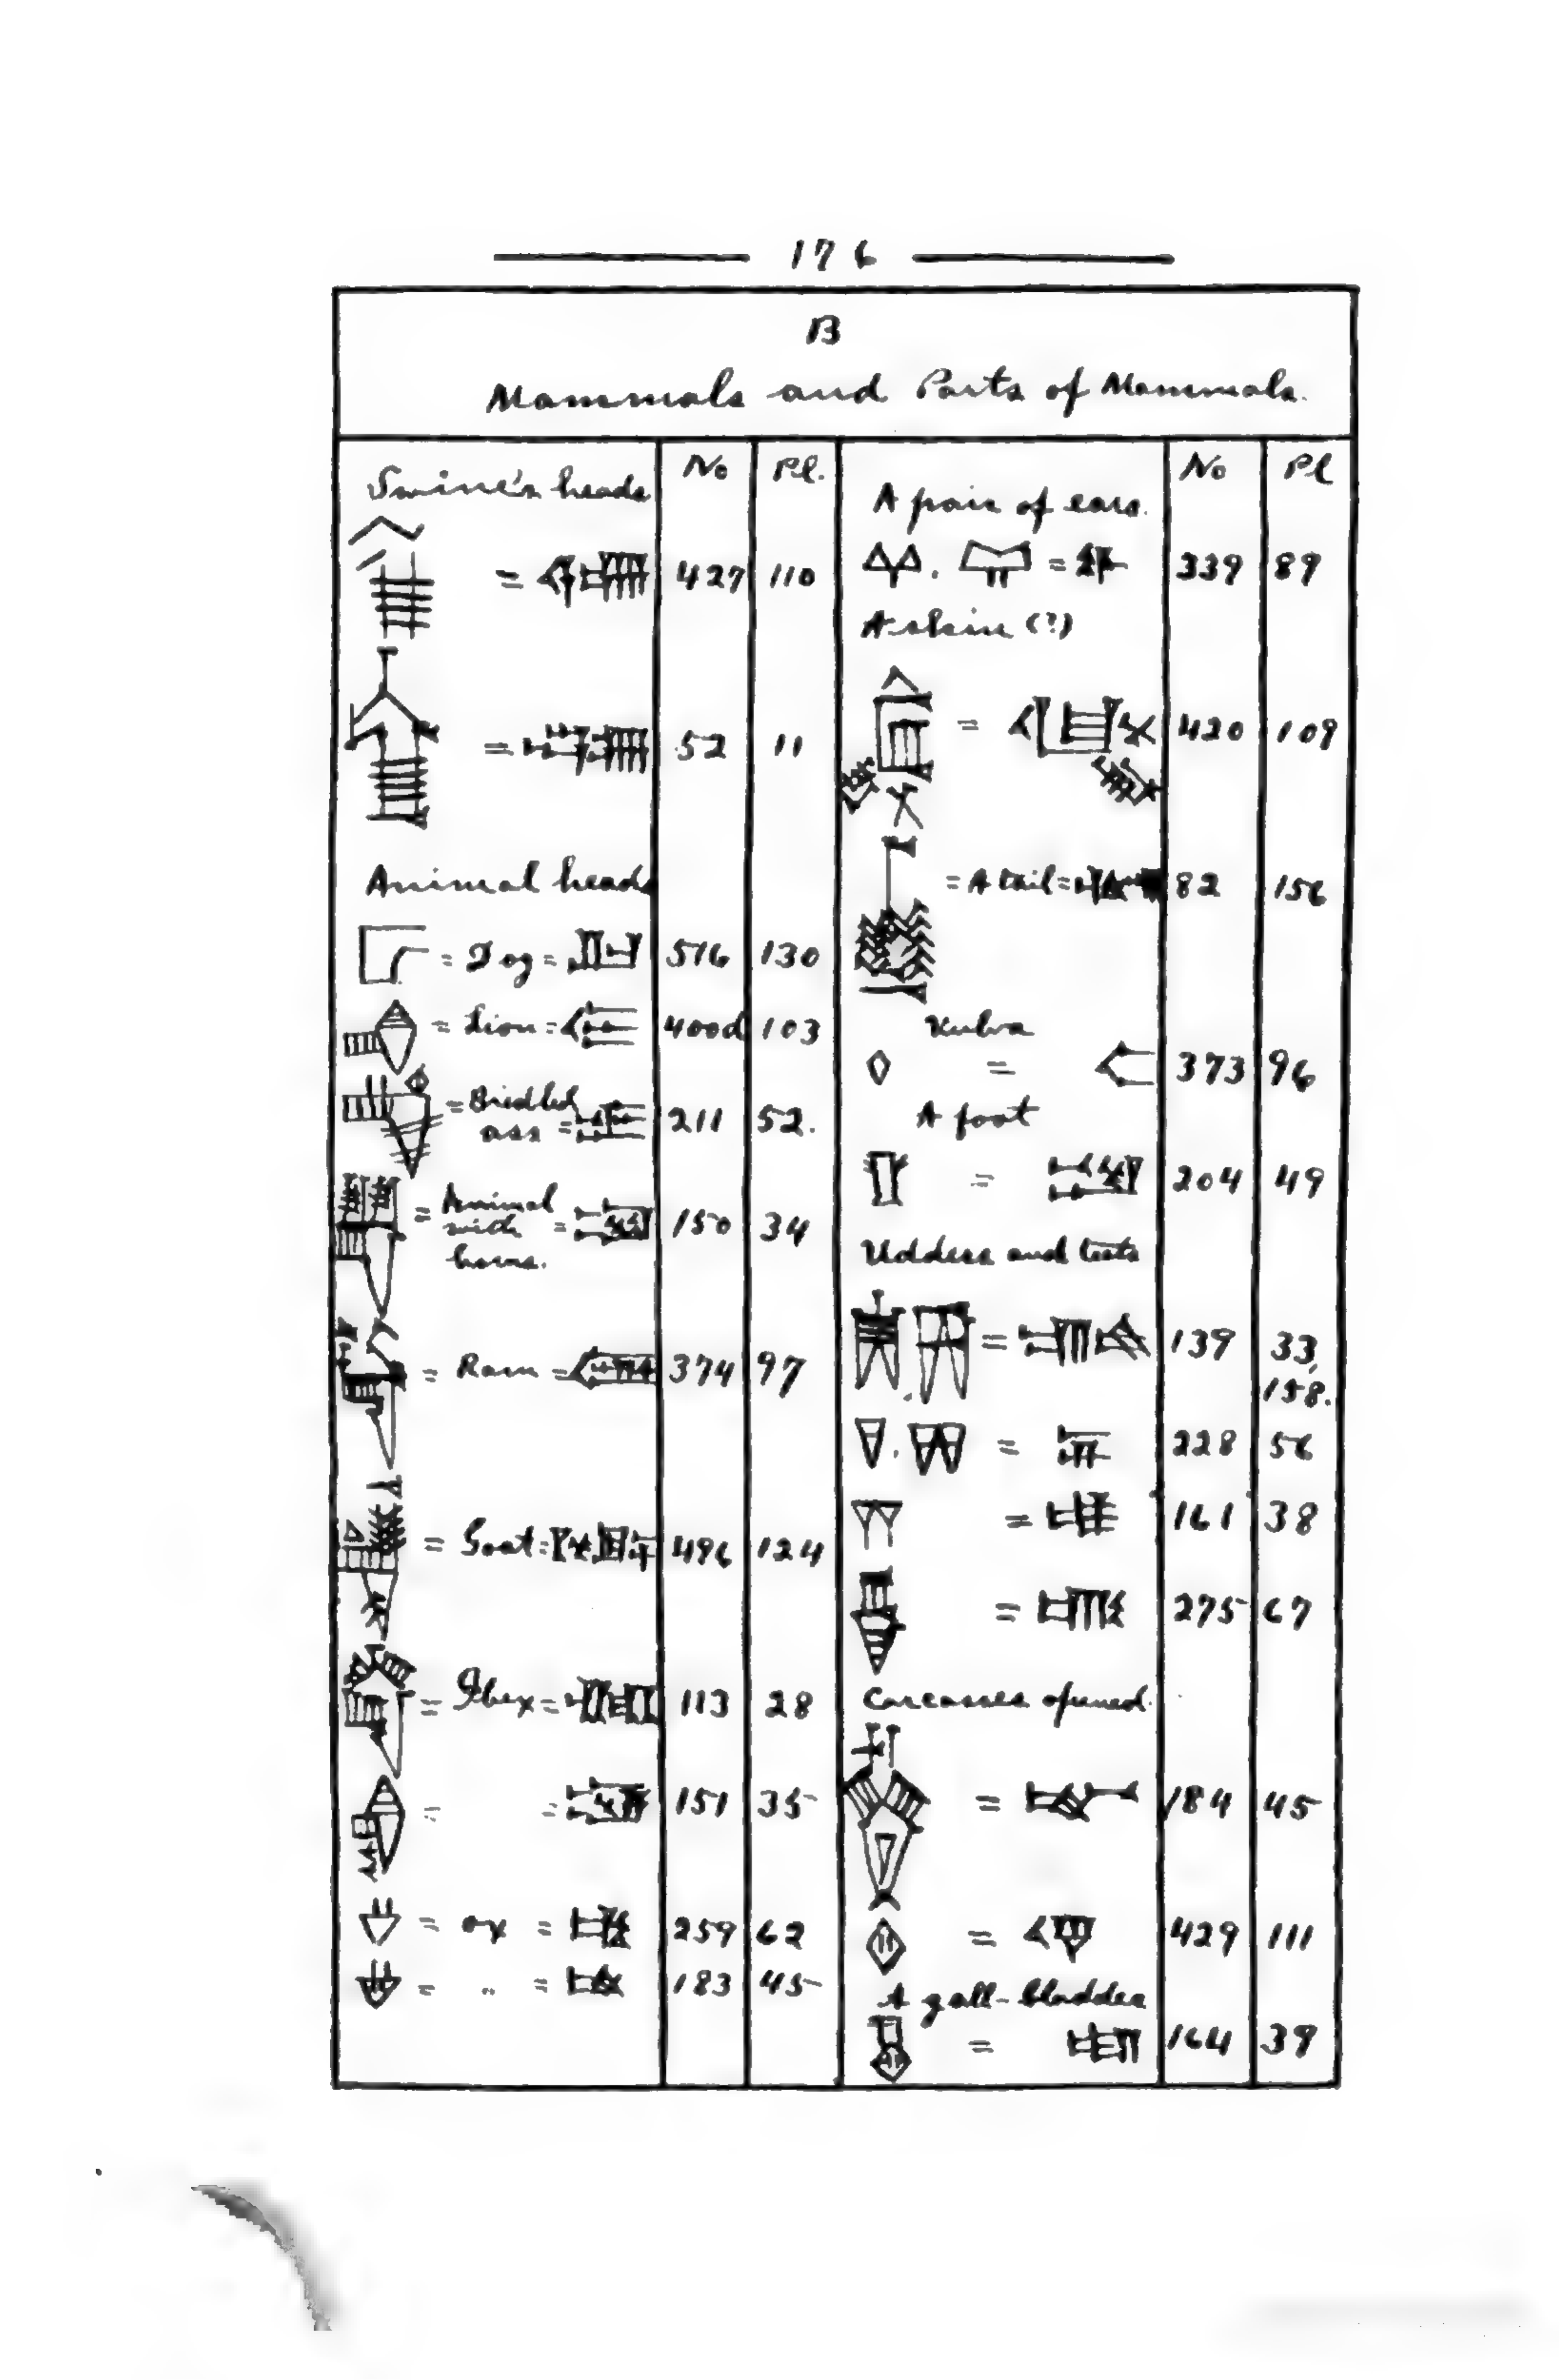 176
B
Mammals and Parts of Mammals.
Swine's heads No Pl.
= 427 110
= 52 11
Animal heads
= Dog = 516 130
= Lion = 400d 103
= Bridled
ass = 211 52.
= Animal
with = 150 34
horns.
= Ram = 374 97
= Goat = 496 124
= Ibex = 113 28
= = 151 35
= ox = 259 62
= " = 183 45
A pair of ears. No Pl
. = 339 89
A skin (?)
= 420 109
= A tail = 82 156
Vulva
= 373 96
A foot
= 204 49
Udders and teats
. = 139 33,
158.
. = 228 56
= 161 38
= 275 67
Carcasses opened.
= 184 45
= 429 111
A gall-bladder
= 164 39